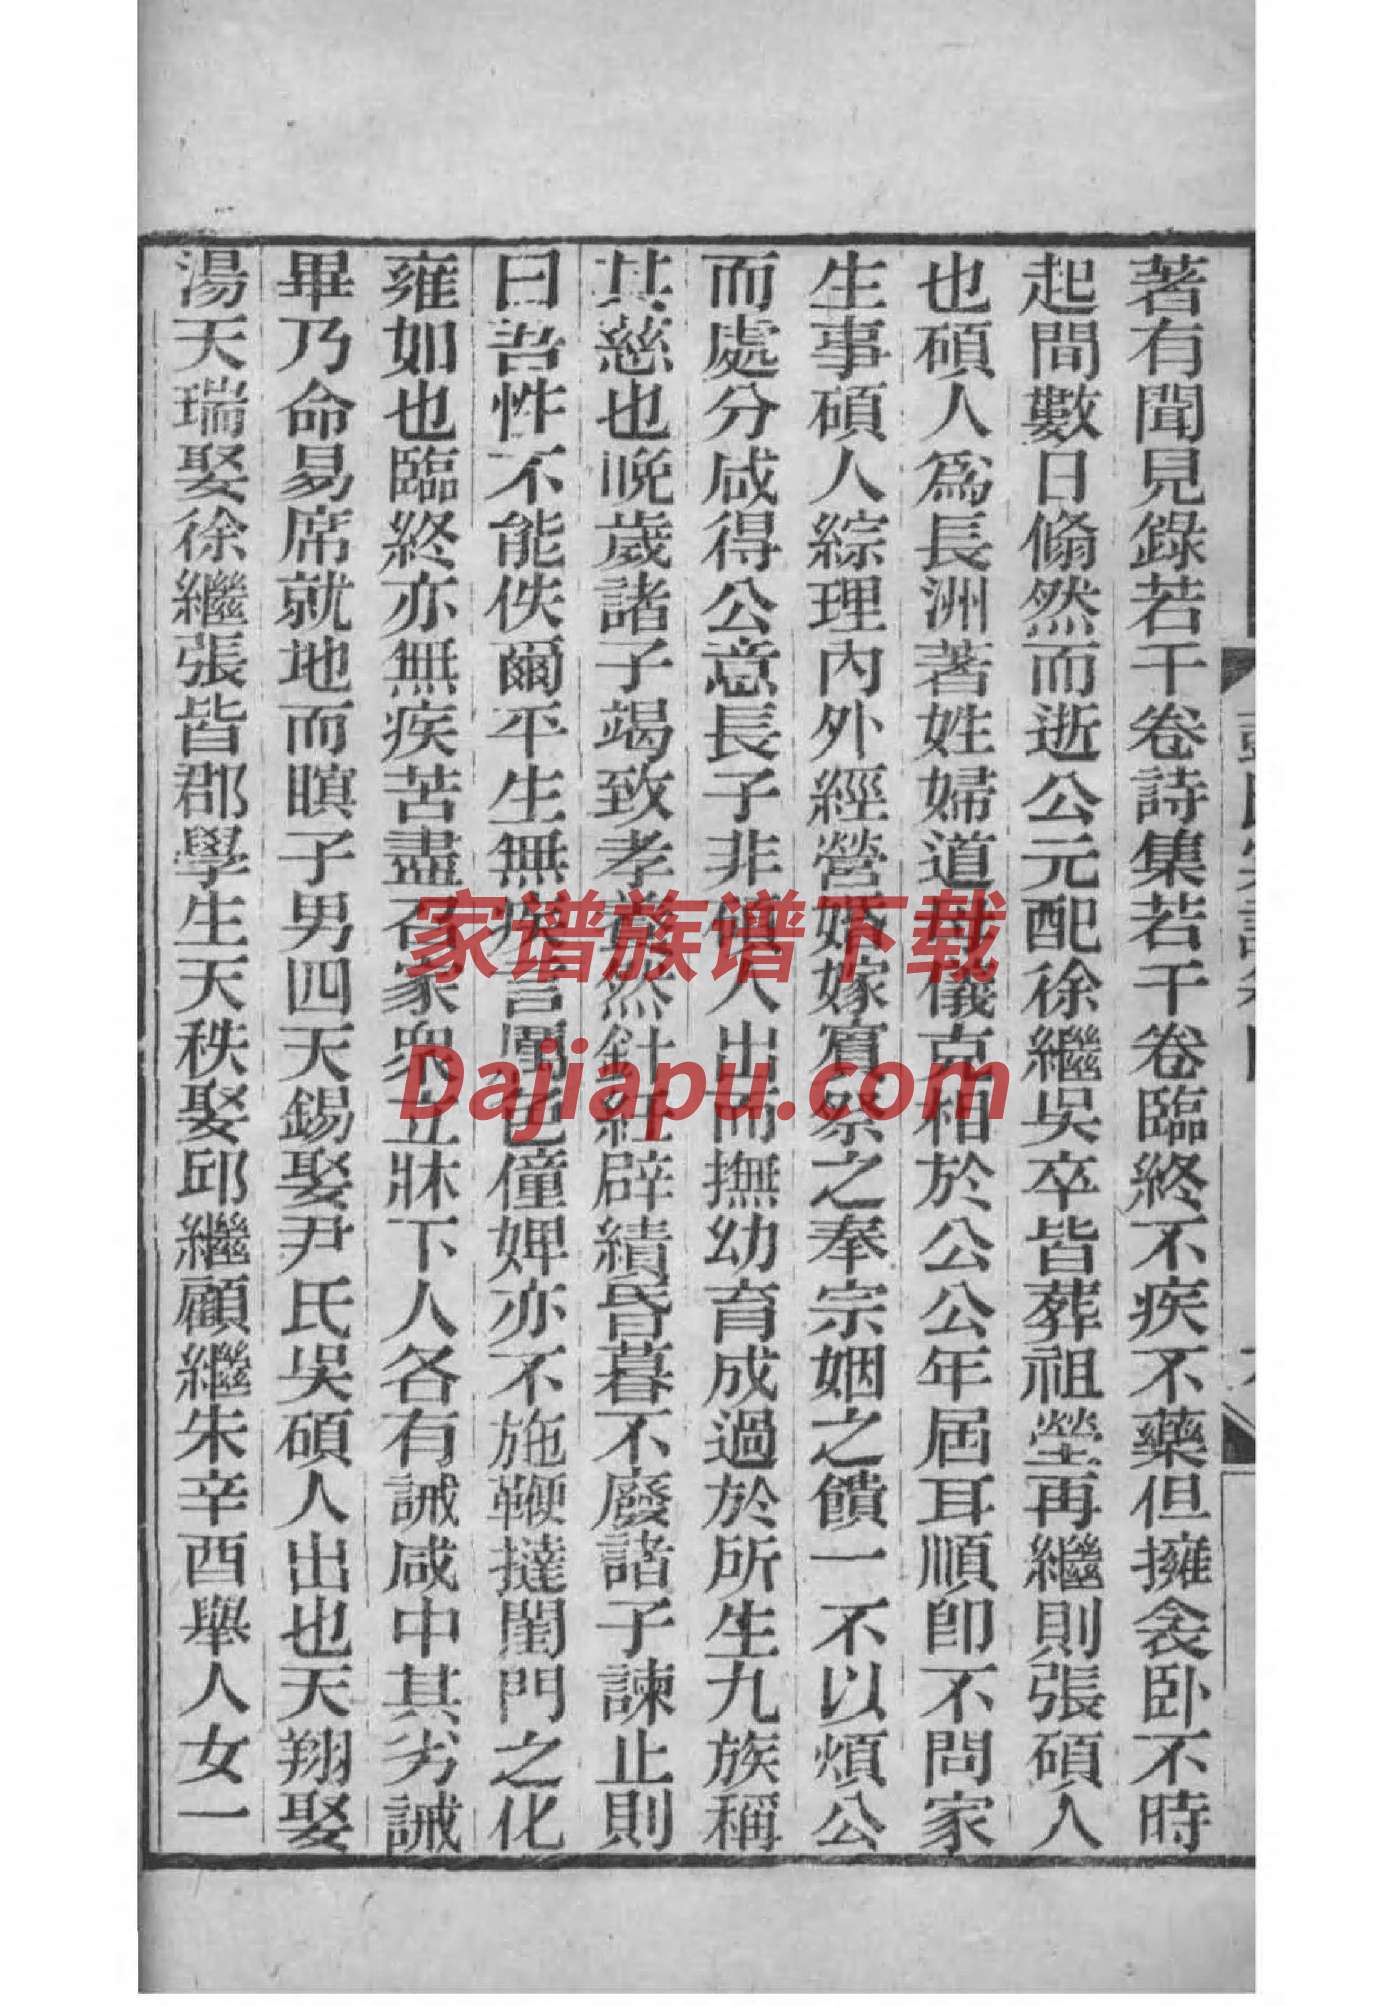 著有聞見錄若干卷詩集若干卷臨終不疾不藥但擁衾卧不時
起間數日翛然而逝公元配徐繼吳卒皆葬祖塋再繼則張碩人
也碩人爲長洲著姓婦道母儀克相於公公年屆耳順卽不問家
生事碩人綜理內外經營婚嫁賓祭之奉宗姻之饋一不以煩公
而處分咸得公意長子非碩人出而撫幼育成過於所生九族稱
其慈也晚歲諸子竭致孝養然針紝辟績昏暮不廢諸子諫止則
曰吾性不能佚爾平生無疾言闈也僮婢亦不施鞭撻閨門之化
雍如也臨終亦無疾苦盡召家眾立牀下人各有誡咸中其劣誡
畢乃命易席就地而瞑子男四天錫娶尹氏吳碩人出也天翔娶
湯天瑞娶徐繼張皆郡學生天秩娶邱繼顧繼朱辛酉舉人女一
家谱族谱下载
Dajiapu.com